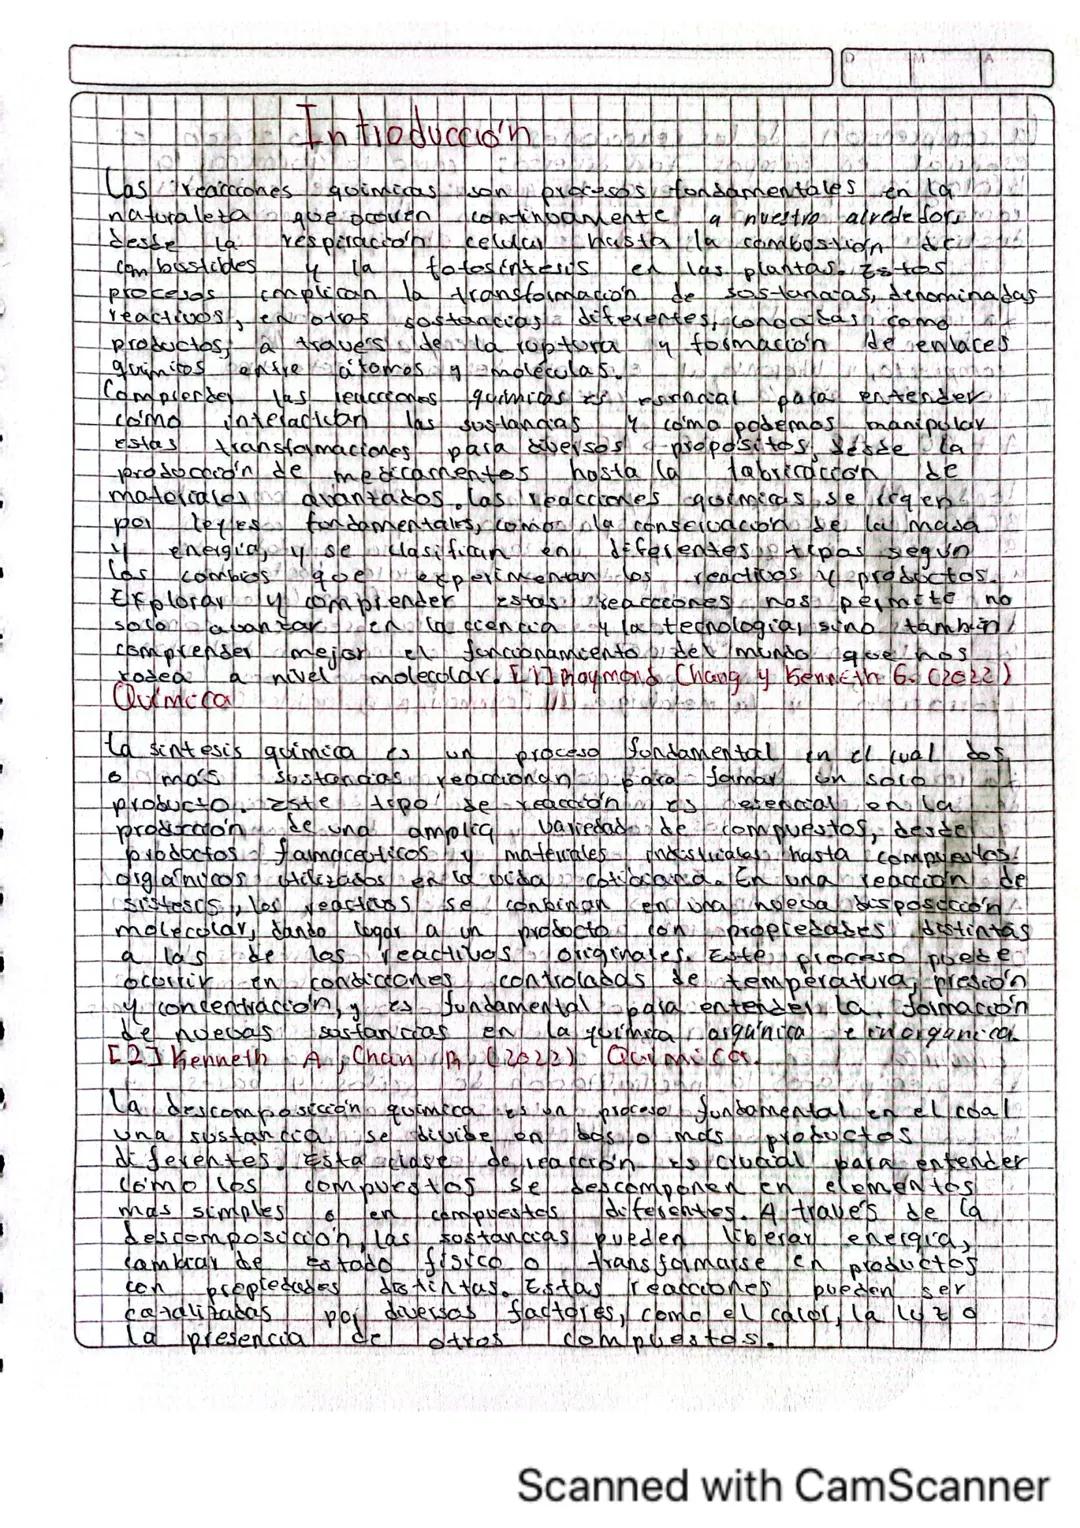 D M A
Introducción
Las reacciones químicas son procesos fundamentales en la
naturaleza que ocurren continuamente a nuestro alrededor,
desde la respiración celular hasta la combustión de
combustibles y la fotosíntesis en las plantas. Estos
procesos implican la transformación de sustancias, denominadas
reactivos, en otras sustancias diferentes, conocidas como
productos, a través de la ruptura y formación de enlaces
químicos entre átomos y moléculas.
Comprender las reacciones químicas es esencial para entender
cómo interactúan las sustancias y cómo podemos manipular
estas transformaciones para diversos propósitos, desde la
producción de medicamentos hasta la fabricación de
materiales avanzados. Las reacciones químicas se rigen
por leyes fundamentales, como la conservación de la masa
y energía, y se clasifican en diferentes tipos según
los cambios que experimentan los reactivos y productos.
Explorar y comprender estas reacciones nos permite no
solo abanzar en la ciencia y la tecnología, sino también
comprender mejor el funcionamiento del mundo que nos
rodea a nivel molecular. [1] Raymond Chang y Kenneth G. (2022)
Química
La síntesis química es un proceso fundamental en el cual dos
o más sustancias reaccionan para formar un solo
producto. Este tipo de reacción es esencial en la
producción de una amplia variedad de compuestos, desde
productos farmacéuticos y materiales industriales hasta compuestos
orgánicos utilizados en la vida cotidiana. En una reacción de
síntesis, los reactivos se combinan en una nueva disposición
molecular, dando lugar a un producto con propiedades distintas
a las de los reactivos originales. Este proceso puede
ocurrir en condiciones controladas de temperatura, presión
y concentración, y es fundamental para entender la formación
de nuebas sustancias en la química orgánica e inorgánica.
[2] Kenneth A, Chan R (2022) Química.
La descomposición química es un proceso fundamental en el cual
una sustancia se divide en dos o más productos
diferentes. Esta clase de reacción es crucial para entender
cómo los compuestos se descomponen en elementos
mas simples o en compuestos diferentes. A través de la
descomposición, las sustancias pueden liberar energía,
cambiar de estado físico o transformarse en productos
con propiedades distintas. Estas reacciones pueden ser
catalizadas por diversos factores, como el calor, la luz o
la presencia de otros compuestos.
Scanned with CamScanner